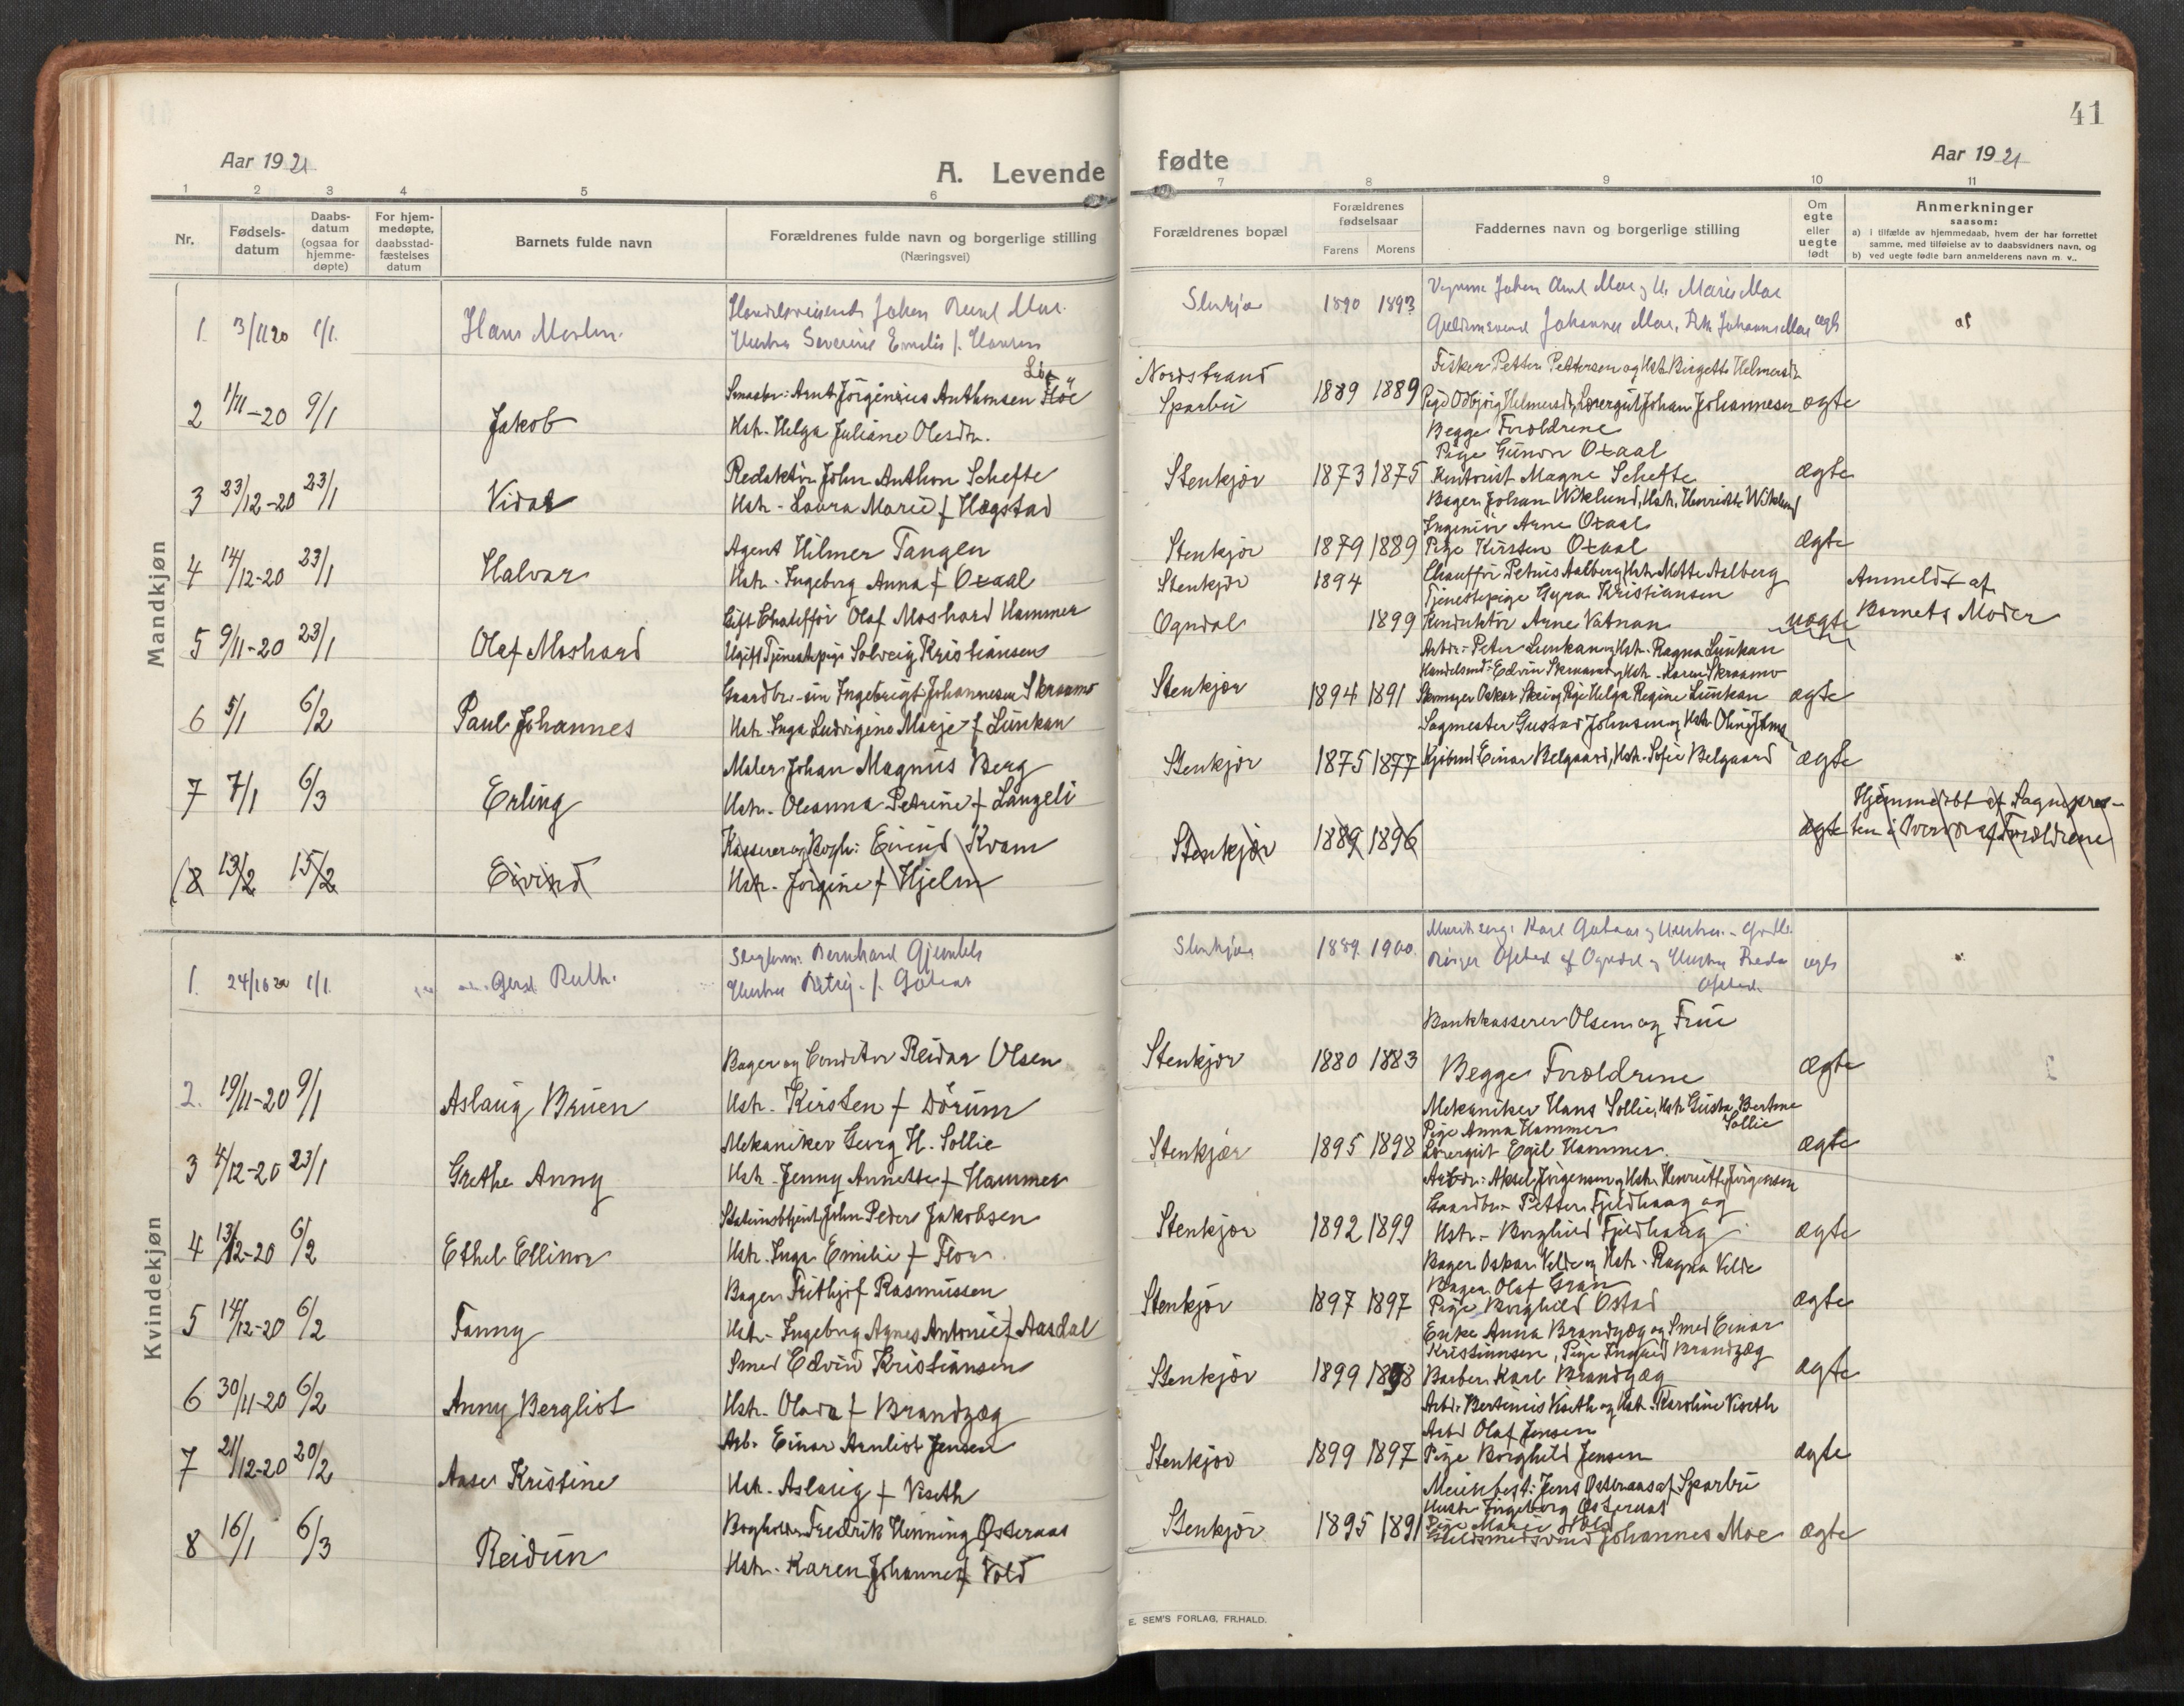 41
Aar 1921
A. Levende
fødte
Aar 1921
1 2 3 4 5 6 7 8 9 10 11
Nr.
Fødsels-
datum
Daabs-
datum
(ogsaa for
hjemme-
døpte)
For hjem-
medøpte,
daabsstad-
fæstelses
datum
Barnets fulde navn
Forældrenes fulde navn og borgerlige stilling
(Næringsvei)
Forældrenes bopæl
Forældrenes
fødselsaar
Farens Morens
Faddernes navn og borgerlige stilling
Om
egte
eller
uegte
født
Anmerkninger
saasom:
a) i tilfælde av hjemmedaab, hvem der har forrettet
samme, med tilføielse av to daabsvidners navn, og
b) ved uegte fødte barn anmelderens navn m. v..
Mandkjøn
1. 3/11 20 1/1. Hans
Johan Moe.
1890 1893
Johan Moe Marie Moe
Johannes Moe, egte
2 1/11-20 9/1 Jakob
Arnt Jörginius Anthonsen
Hstr. Helga Juliane Olesdtr.
Nordstrand
Sparbu
1889 1889
Fisker Petter Pettersen og Hst. Birgette Helmersdtr
Pige Odbjörg Helmersdtr, Lærergut Johan Johannesen
Begge Forældrene
ægte
3 23/12-20 23/1 Vidar
Redaktör John Anthon Schefte
Hstr. Laura Marie f. Hægstad
Stenkjær
1873 1875
Pige Gunvor Oxaal
Kontorist Magne Schefte
Bager Johan Wiklund, Hstr. Henriette Wiklund
ægte
4 14/12-20 23/1 Halvar
Agent Hilmer Tangen
Hstr. Ingeborg Anna f. Oxaal
Stenkjær
1879 1889
Ingeniör Arne Oxaal
Pige Kirsten Oxaal
ægte
5 9/11-20 23/1 Olaf Moshard
Gift Chaufför Olaf Moshard Hammer
Ugift Tjenestepige Solveig Kristiansen
Stenkjær
Ogndal
1894
1899
Chaufför Petrus Aalberg, Hstr. Mette Aalberg
Tjenestepige Gyra Kristiansen
Konduktör Arne Vatnan
uægte
Anmeldt af
Barnets Moder
6 5/1 6/2 Paul Johannes
Gaardbr. sön Ingebrigt Johannesen Skraamo
Hstr. Inga Ludvigine Marje f. Lunkan
Stenkjær
1894 1891
Arbdr. Peter Lunkan og Hstr. Ragna Lunkan
Handelsmd. Edvin Skraamo og Hstr. Karen Skraamo
Skomager Oskar Skei og Pige Helga Regine Lunkan
ægte
7 7/1 6/3 Erling
Maler Johan Magnus Berg
Hstr. Oleanna Petrine f. Langeli
Stenkjær
1875 1877
Sagmester Gustav Johnsen og Hstr.
Kjöbmd Einar Belgaard, Hstr. Sofie Belgaard
ægte
(8 13/2 15/2 Eivind
Kasserer og Bogh: Eivind Kvam
Hstr. Jörgine f. Hjelm
Stenkjær
1889 1896
ægte
Hjemmedöbt af Sognepres-
ten i Overvær af Forældrene
Kvindekjøn
1. 24/10 20 1/1. Gerd Ruth.
Bernhard
1889 1900
Karl
egte
2. 19/11-20 9/1 Aslaug Bruen
Bager og Conditor Reidar Olsen
Hstr. Kirsten f. Dörum
Stenkjær
1880 1883
Bankkasserer Olsen og Frue
Begge Forældrene
ægte
3 4/12-20 23/1 Grethe Anny
Mekaniker Georg H. Sollie
Hstr. Jenny Annette f. Hammer
Stenkjær
1895 1898
Mekaniker Hans Sollie, Hstr. Gusta Bertine
Sollie
Pige Anna Hammer
Lærergut Egil Hammer.
ægte
4 13/12-20 6/2 Ethel Ellinor
Stationsbtjent John Peder Jakobsen
Hstr. Inga Emilie f. Flor
Stenkjær
1892 1899
Arbdr. Aksel Jörgensen og Hstr. Henriette Jörgensen
Gaardbr. Petter Fjeldhaug og
Hstr. Borghild Fjeldhaug
ægte
5 14/12-20 6/2 Fanny
Bager Frithjof Rasmussen
Hstr. Ingeborg Agnes Antonie f. Aasdal
Stenkjær
1897 1897
Bager Oskar Velde og Hstr. Ragna Velde
Bager Olaf Gran
Pige Borghild Östad
ægte
6 30/11-20 6/2 Anny Bergliot
Smed Edvin Kristiansen
Hstr. Olava f. Brandzæg
Stenkjær
1899 1898
Enke Anna Brandzæg og Smed Einar
Kristiansen, Pige Ingrid Brandzæg
Barber Karl Brandzæg
ægte
7 21/12-20 20/2 Aase Kristine
Arb. Einar Arnliot Jensen
Hstr. Aslaug f. Viseth
Stenkjær
1899 1897
Arbd. Bertinius Viseth og Hstr. Karoline Viseth
Arbd Olaf Jensen
Pige Borghild Jensen
ægte
8 16/1 6/3 Reidun
Bogholder Fredrik Henning Østeraas
Hstr. Karen Johanne f. Vold
Stenkjær
1895 1891
Meieribest: Jens Østeraas af Sparbu
Hustr. Ingeborg Østeraas
Pige Marie
Guldsmedsvend Johannes Moe
ægte
E. SEM'S FORLAG, FR.HALD.